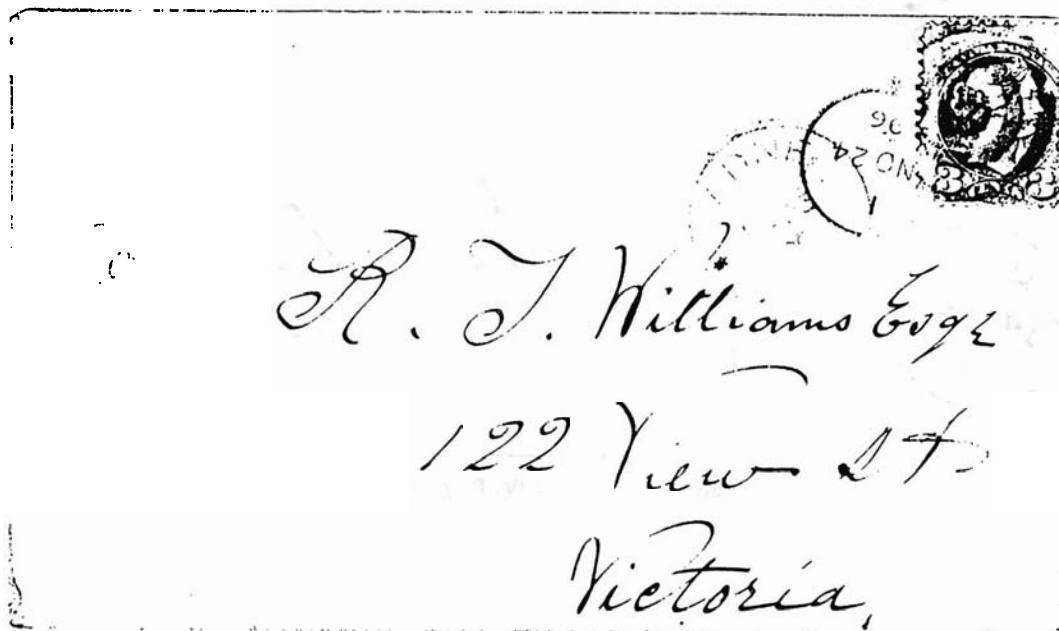 NO 24
96
3 3
R. T. Williams Esqr
122 View St
Victoria,